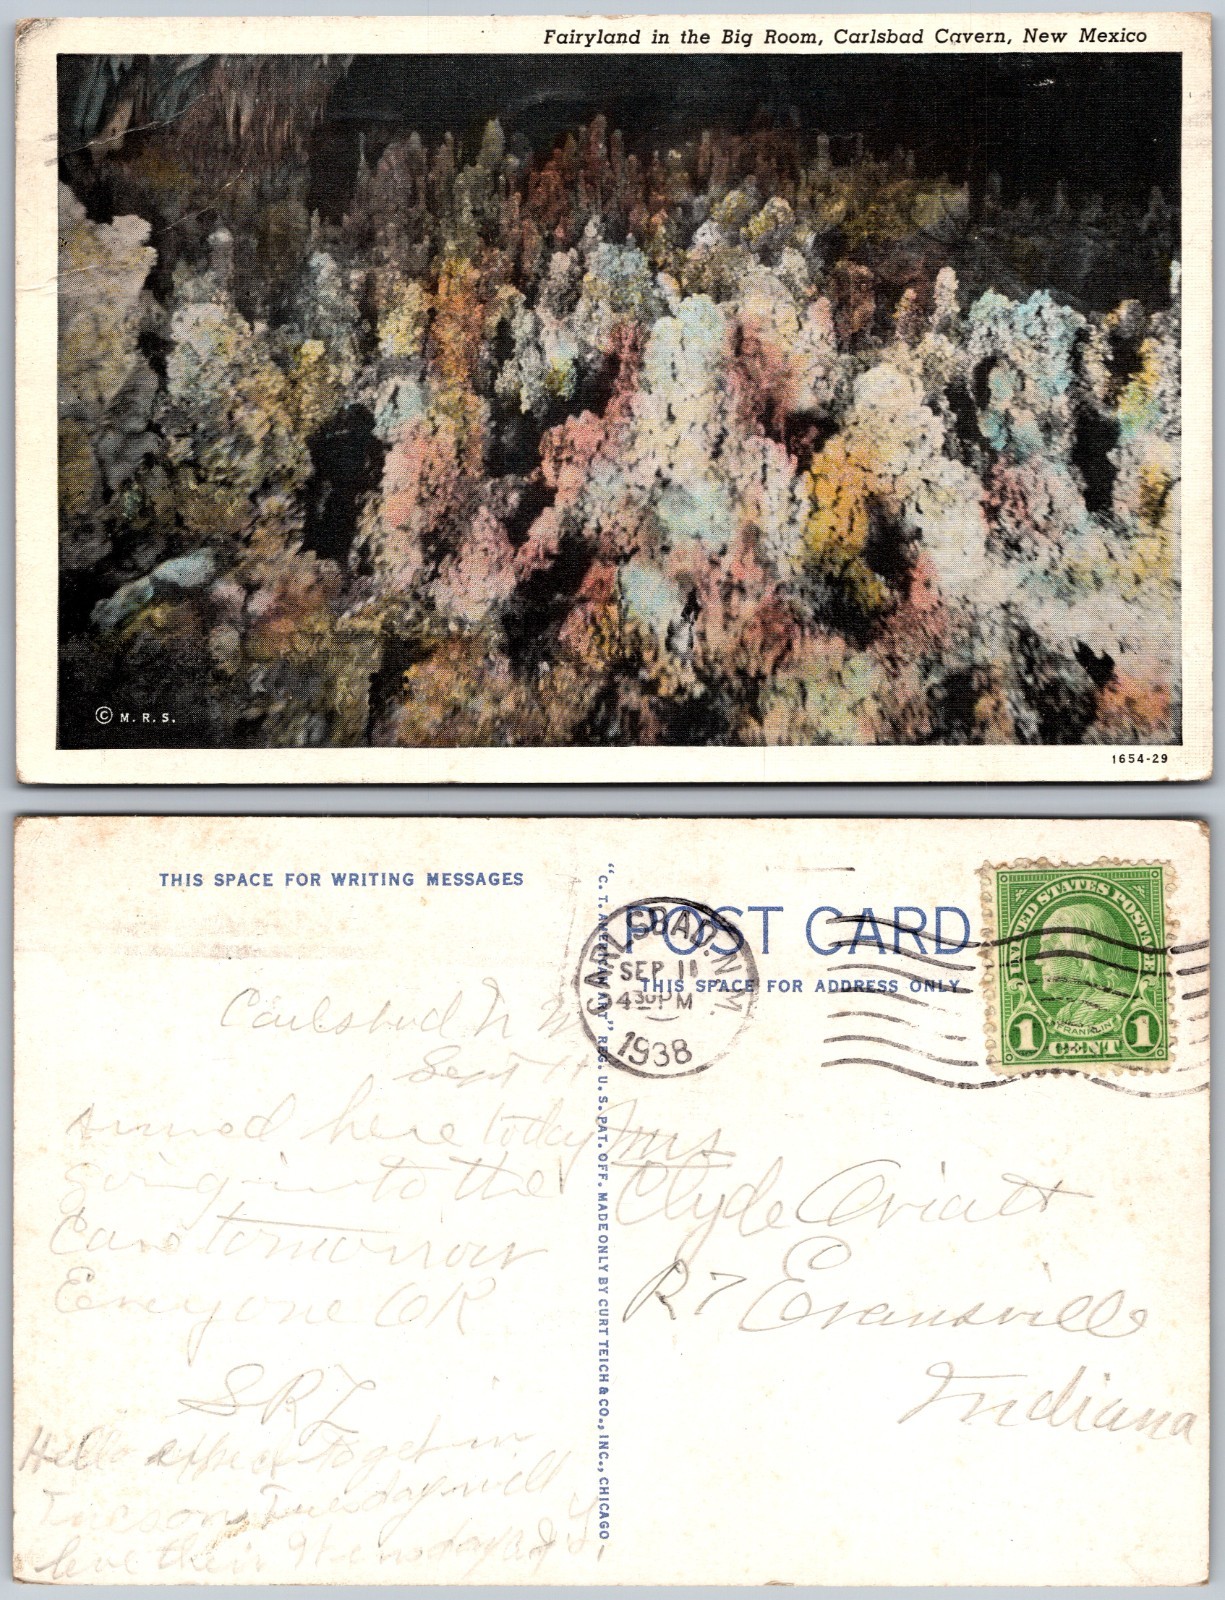 Fairyland in the Big Room, Carlsbad Cavern, New Mexico
© M. R. S.
1654-29
THIS SPACE FOR WRITING MESSAGES
POST CARD
THIS SPACE FOR ADDRESS ONLY
"C. T. AMERICAN ART" REG. U. S. PAT. OFF. MADE ONLY BY CURT TEICH & CO., INC., CHICAGO
CARLSBAD. N.M.
SEP 11
4 30 PM
1938
UNITED STATES POSTAGE
FRANKLIN
1 CENT 1
Carlsbad N M
Sept 11
Arrived here today
going into the
Cave tomorrow
Everyone OK
Hello expect to get in
Tucson Tuesday will
Mrs
Clyde Oviatt
R 7 Evansville
Indiana